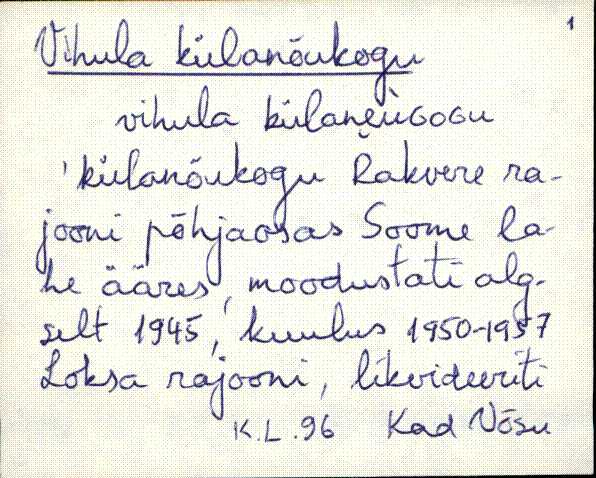 1
Vihula külanõukogu
vihula külane̮ùGOGU
'külanõukogu Rakvere ra-
jooni põhjaosas Soome la-
he ääres, moodustati alg-
selt 1945, kuulus 1950-1957
Loksa rajooni, likvideeriti
K.L.96 Kad Võsu